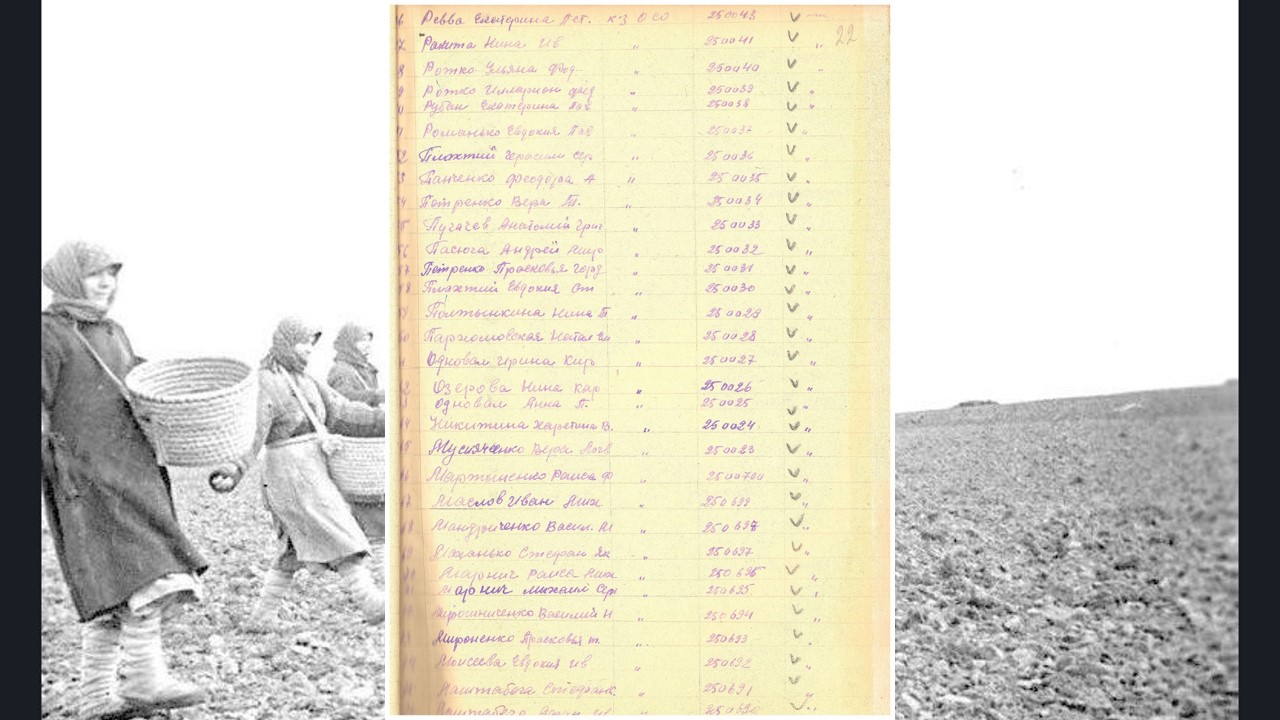 6 Ревва Екатерина Пет. к-з ОСО 250043 V 22
7 Ракита Нина Ив " 250041 V "
8 Рожко Ульяна Фед " 250040 V "
9 Рожко Илларион фед " 250039 V "
Рубан Екатерина Пав " 250038 V "
Романько Евдокия Пав " 250037 V "
2 Плахтий Герасим Сер " 250036 V "
3 Панченко Феодора А " 250035 V "
4 Петренко Вера Т. " 250034 V "
Пугачев Анатолий Григ " 250033 V "
Пасюга Андрей " 250032 V "
17 Петренко Прасковья Горд " 250031 V "
18 Плахтий Евдокия Ст " 250030 V "
Полтынкина Нина П " 250029 V "
Пархомовская " 250028 V "
Одновал Ирина Кир " 250027 V "
2 Озерова Нина Кар " 250026 V "
Одновал Анна П. " 250025 V "
4 Никитина Харетина В. " 250024 V "
Мусияченко Вера " 250023 V "
Мартыненко Раиса Ф " 2500700 V "
Маслов Иван Мих " 250699 V "
Мандриченко Васил. М " 250698 V "
Маханько Стефан Як " 250697 V "
Марнич Раиса Мих " 250696 V "
Марнич Михаил Сер " 250695 V "
Мирошниченко Василий Н " 250694 V "
Мироненко Прасковья т. " 250693 V "
Моисеева Евдокия Ив " 250692 V "
Маштабега " 250691 V "
Маштабега Ив " 250690 V "